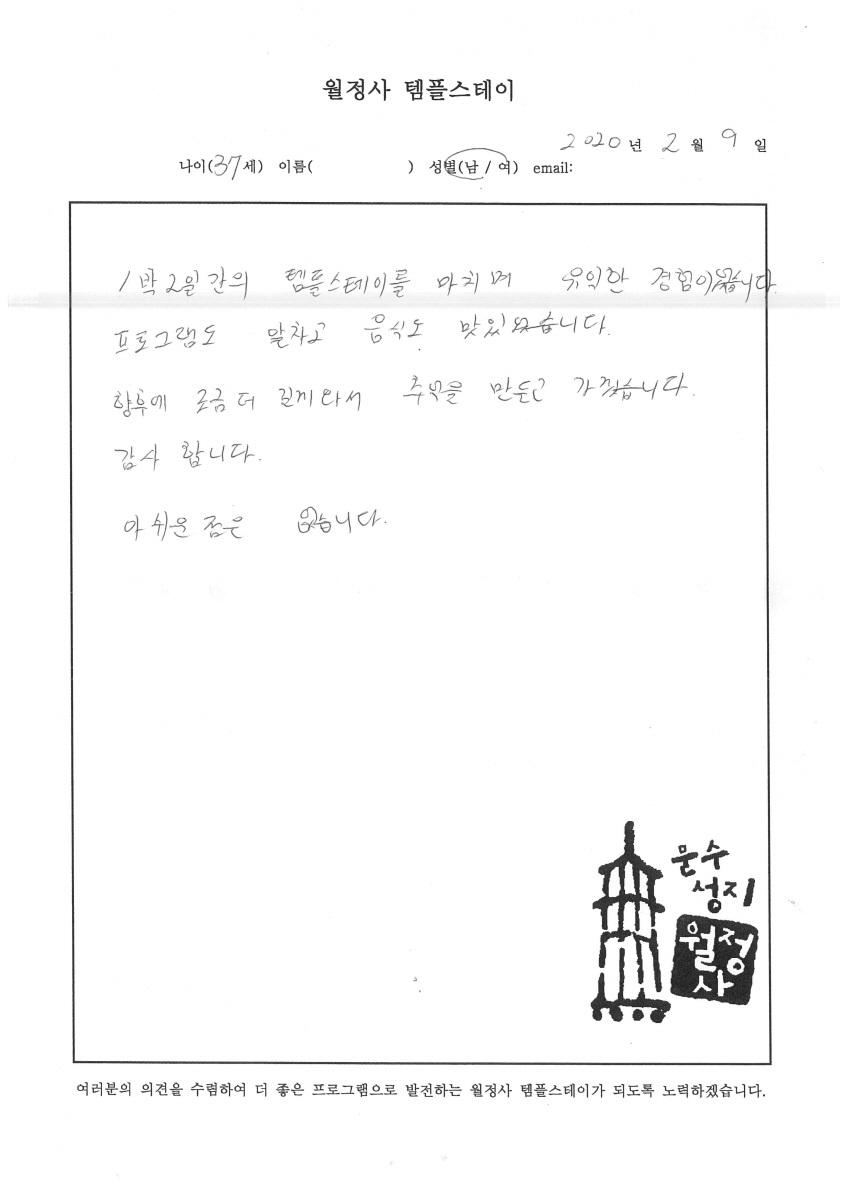 월정사 템플스테이
2020년 2월 9일
나이(37세) 이름( ) 성별(남 / 여) email:
1박2일간의 템플스테이를 마치며 유익한 경험이였습니다.
프로그램도 알차고 음식도 맛있었습니다.
향후에 조금 더 길게와서 추억을 만들고 가겠습니다.
감사 합니다.
아쉬운 점은 없습니다.
문수
성지
월정
사
여러분의 의견을 수렴하여 더 좋은 프로그램으로 발전하는 월정사 템플스테이가 되도록 노력하겠습니다.